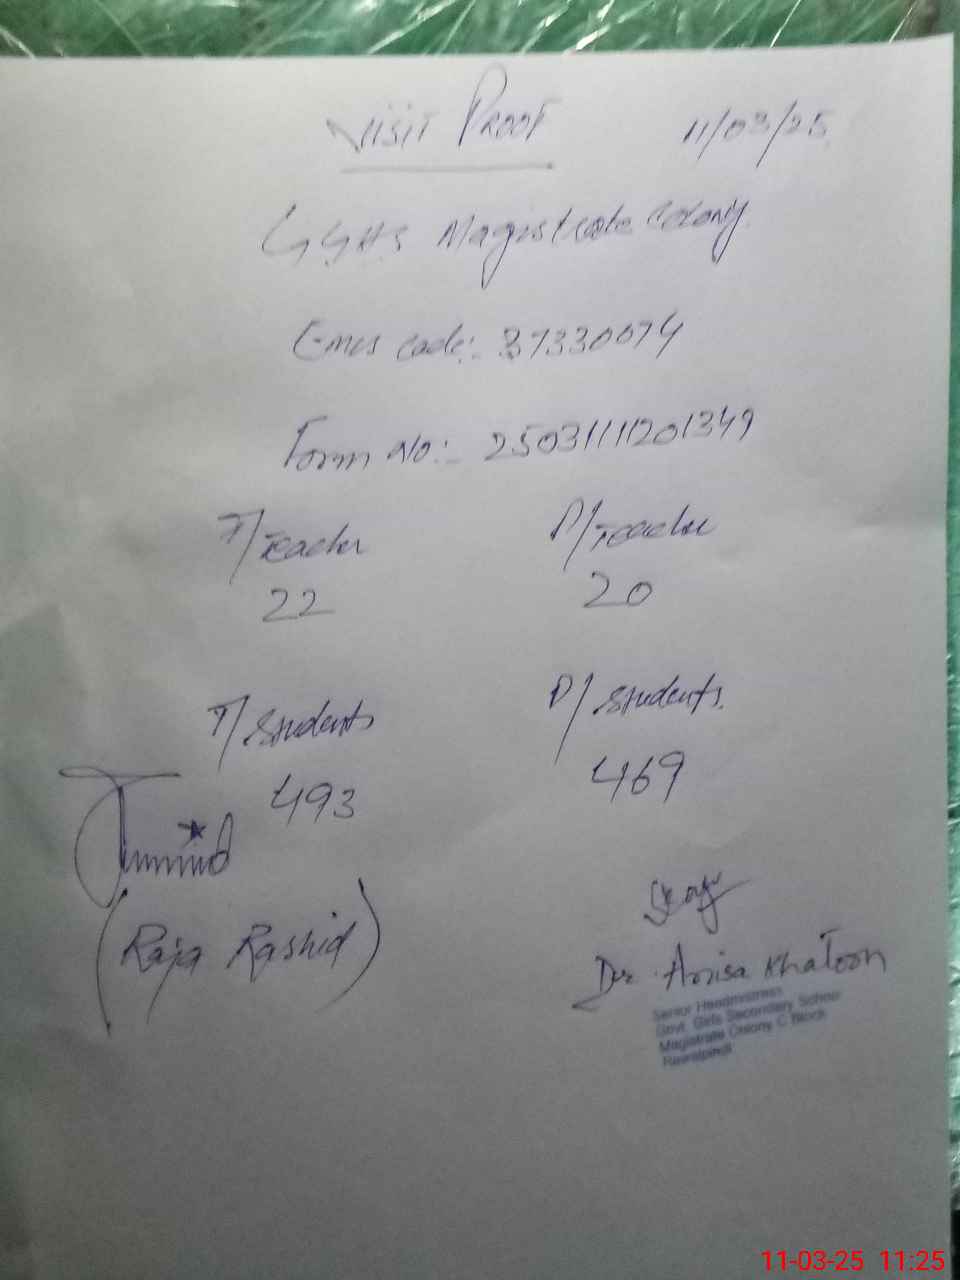 VISIT PROOF 11/03/25
GGHS Magistrate Colony
Emis code:- 37330074
Form No:- 25031111201349
T/Teacher P/Teacher
22 20
T/Students P/Students
493 469
(Raja Rashid)
Khatoon
Senior Headmistress
Govt. Girls Secondary School
Magistrate Colony C Block
Rawalpindi
11-03-25 11:25